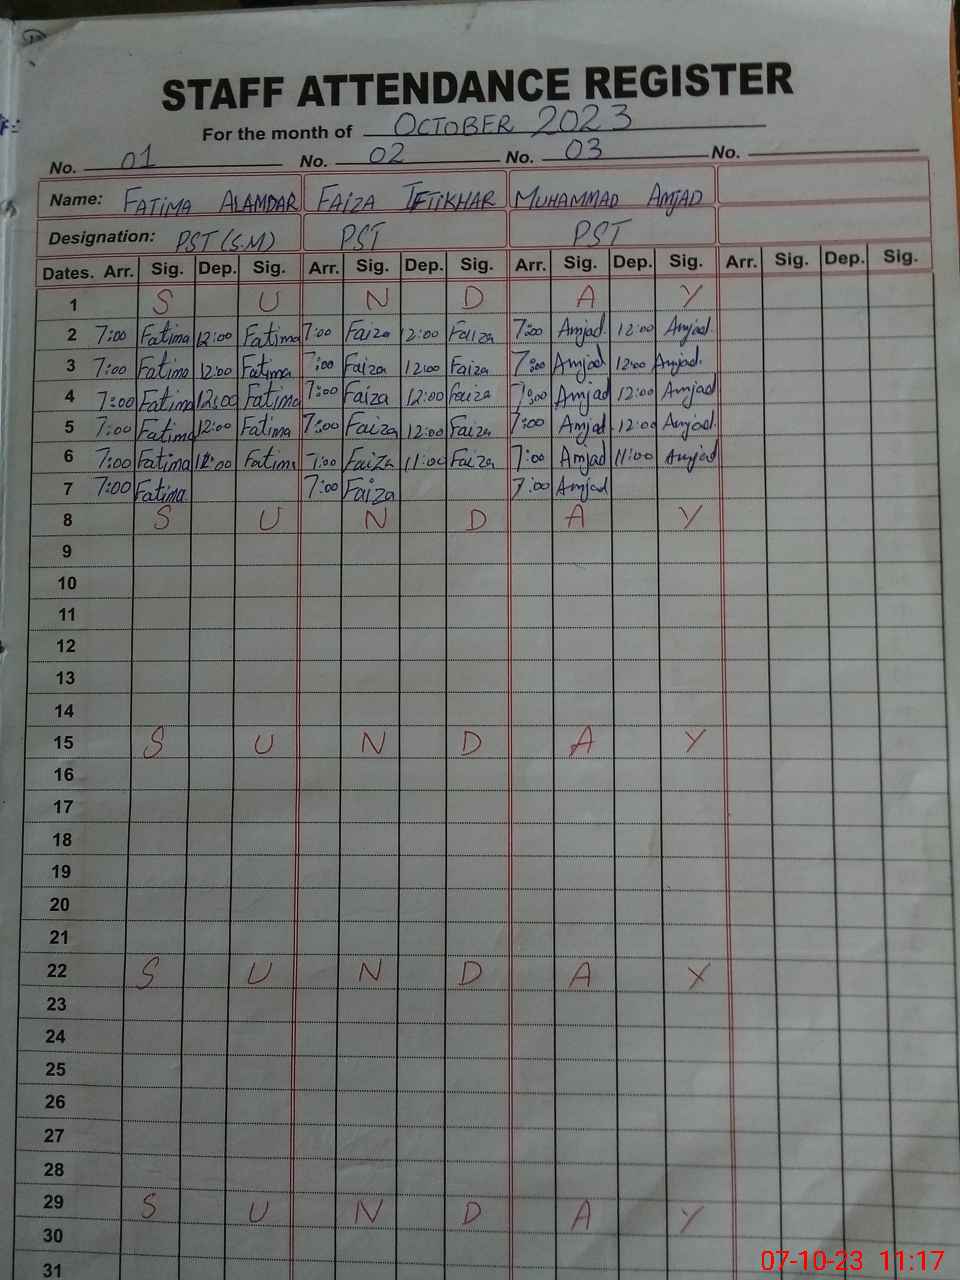 STAFF ATTENDANCE REGISTER
For the month of OCTOBER 2023
No. 01 No. 02 No. 03 No.
Name: FATIMA ALAMDAR FAIZA IFTIKHAR MUHAMMAD AMJAD
Designation: PST (S.M) PST PST
Dates. Arr. Sig. Dep. Sig. Arr. Sig. Dep. Sig. Arr. Sig. Dep. Sig. Arr. Sig. Dep. Sig.
1 S U N D A Y
2 7:00 Fatima 12:00 Fatima 7:00 Faiza 12:00 Faiza 7:00 Amjad 12:00 Amjad
3 7:00 Fatima 12:00 Fatima 7:00 Faiza 12:00 Faiza 7:00 Amjad 12:00 Amjad
4 7:00 Fatima 12:00 Fatima 7:00 Faiza 12:00 Faiza 7:00 Amjad 12:00 Amjad
5 7:00 Fatima 12:00 Fatima 7:00 Faiza 12:00 Faiza 7:00 Amjad 12:00 Amjad
6 7:00 Fatima Fatima 7:00 Faiza 11:00 Faiza 7:00 Amjad 11:00 Amjad
7 7:00 Fatima 7:00 Faiza 7:00 Amjad
8 S U N D A Y
9
10
11
12
13
14
15 S U N D A Y
16
17
18
19
20
21
22 S U N D A Y
23
24
25
26
27
28
29 S U N D A Y
30
31
07-10-23 11:17